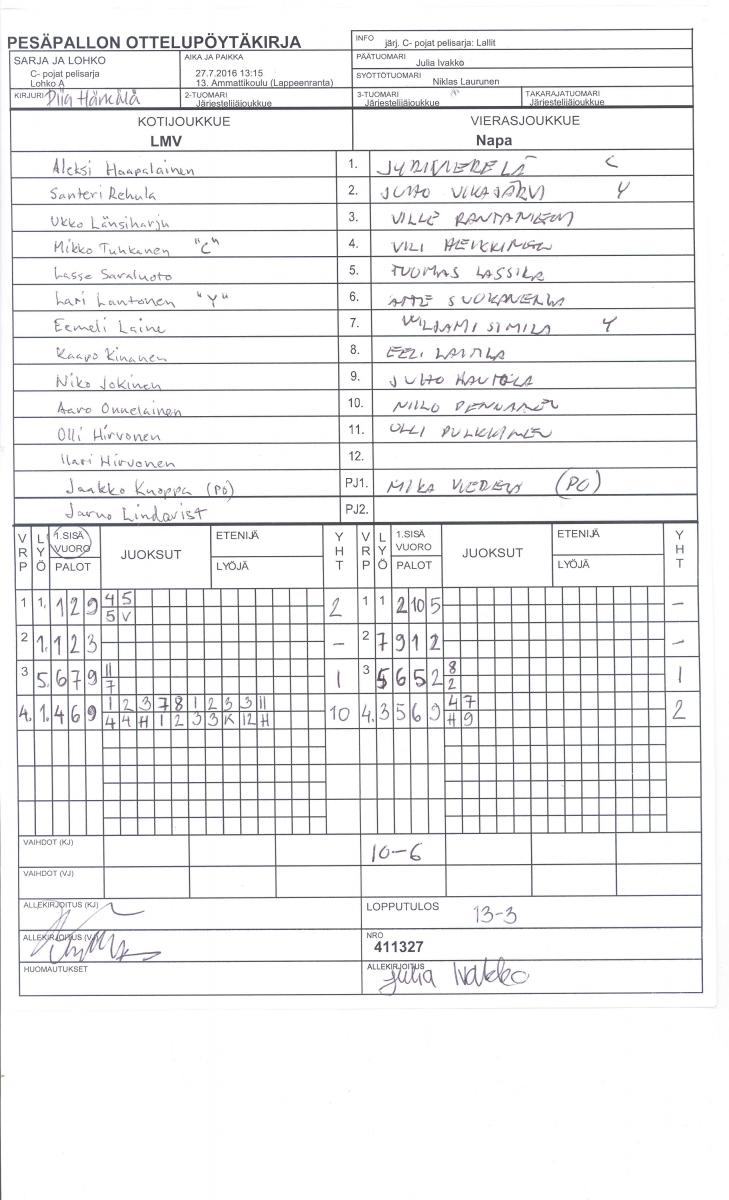 PESÄPALLON OTTELUPÖYTÄKIRJA
INFO järj. C- pojat pelisarja: Lallit
SARJA JA LOHKO
C- pojat pelisarja
Lohko A
AIKA JA PAIKKA
27.7.2016 13:15
13. Ammattikoulu (Lappeenranta)
PÄÄTUOMARI
Julia Ivakko
SYÖTTÖTUOMARI Niklas Laurunen
KIRJURI Piia Härkälä
2-TUOMARI
Järjestelijäjoukkue
3-TUOMARI
Järjestelijäjoukkue
TAKARAJATUOMARI
Järjestelijäjoukkue
KOTIJOUKKUE VIERASJOUKKUE
LMV Napa
Aleksi Haapalainen 1. C
Santeri Rehula 2. JUHO VIKAJÄRVI Y
Ukko Länsiharju 3. VILLE RANTANIEMI
Mikko Tuhkanen "C" 4. VILI HEIKKINEN
Lasse Savaluoto 5. TUOMAS LASSILA
Lari Lantonen "Y" 6.
Eemeli Laine 7. VILJAMI SIMILÄ Y
Kaapo Kinanen 8. EELI LAITILA
Niko Jokinen 9. JUHO HAUTALA
Aaro Onnelainen 10. NIILO PENNANEN
Olli Hirvonen 11. OLLI PULKKINEN
Ilari Hirvonen 12.
Jaakko Knoppa (PO) PJ1. MIKA (PO)
Jarno Lindqvist PJ2.
VRP LYÖ 1.SISÄ VUORO PALOT JUOKSUT ETENIJÄ LYÖJÄ YHT VRP LYÖ 1.SISÄ VUORO PALOT JUOKSUT ETENIJÄ LYÖJÄ YHT
1 1. 1 2 9 4 5 2 1 1 2 10 5 -
5 V
2 1. 1 2 3 - 2 7 9 1 2 -
3 5. 6 7 9 11 1 3 5 6 5 2 8 1
7 2
4. 1. 4 6 9 1 2 3 7 8 1 2 3 3 11 10 4. 3 5 6 9 4 7 2
4 4 H 1 2 3 3 K 12 H H 9
VAIHDOT (KJ) 10-6
VAIHDOT (VJ)
ALLEKIRJOITUS (KJ) LOPPUTULOS 13-3
ALLEKIRJOITUS (VJ) NRO
411327
HUOMAUTUKSET ALLEKIRJOITUS
Julia Ivakko